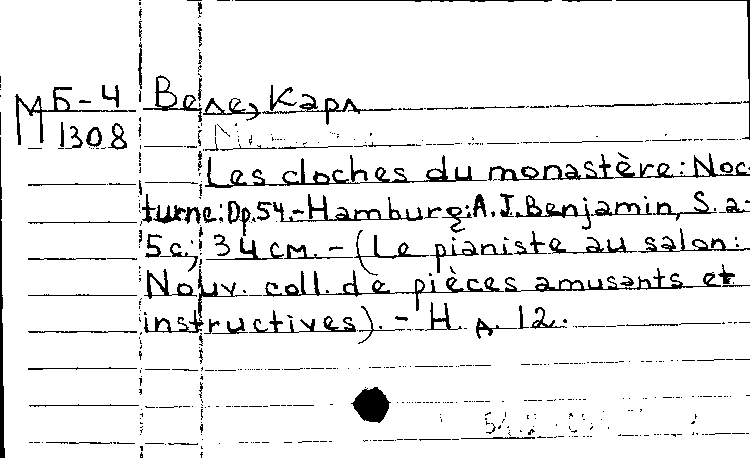 М Б-4 Веле, Карл
1308
Les cloches du monastère: Noc-
turne: Op.54.-Hamburg: A.J.Benjamin, S.a.-
5с.; 34 см. - (Le pianiste au salon:
Nouv. coll. de pièces amusants et
instructives). - Н. д. 12.